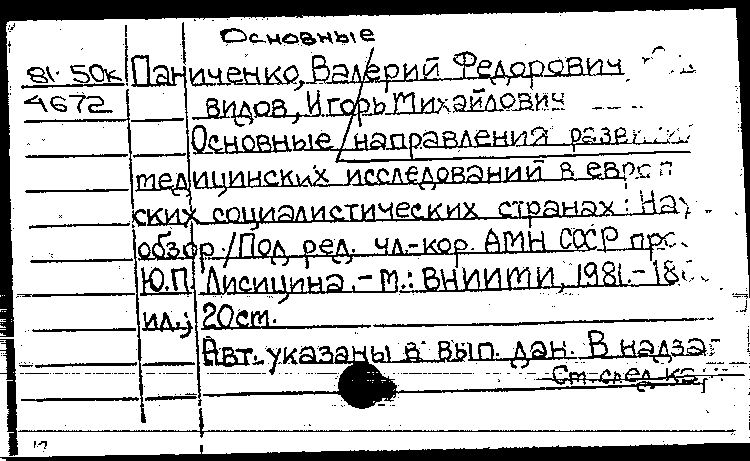 Основные
81-50к Паниченко, Валерий Федорович
4672 видов, Игорь Михайлович
Основные направления разви
медицинских исследований в европ
ских социалистических странах: Нау
обзор /Под ред. чл.-кор. АМН СССР про
Ю.П. Лисицина. - М.: ВНИИМИ, 1981. - 18
ил.; 20 см.
Авт. указаны в вып. дан. В надзаг
См. след. ка